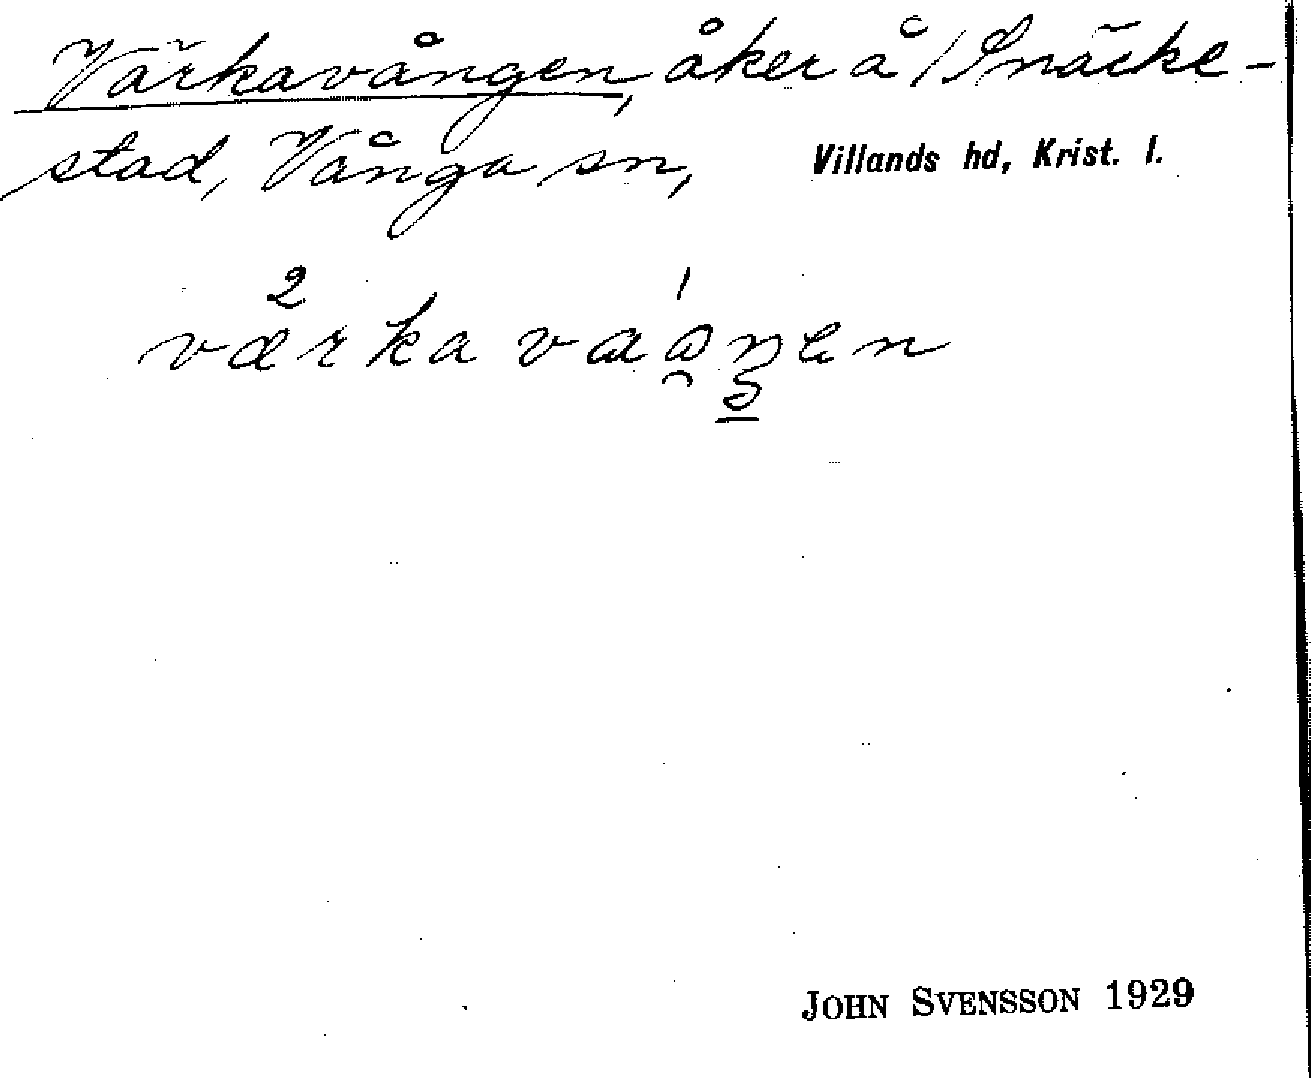 Värkavången, åker å Snäcke-
stad, Vånga sn, Villands hd, Krist. l.
JOHN SVENSSON 1929